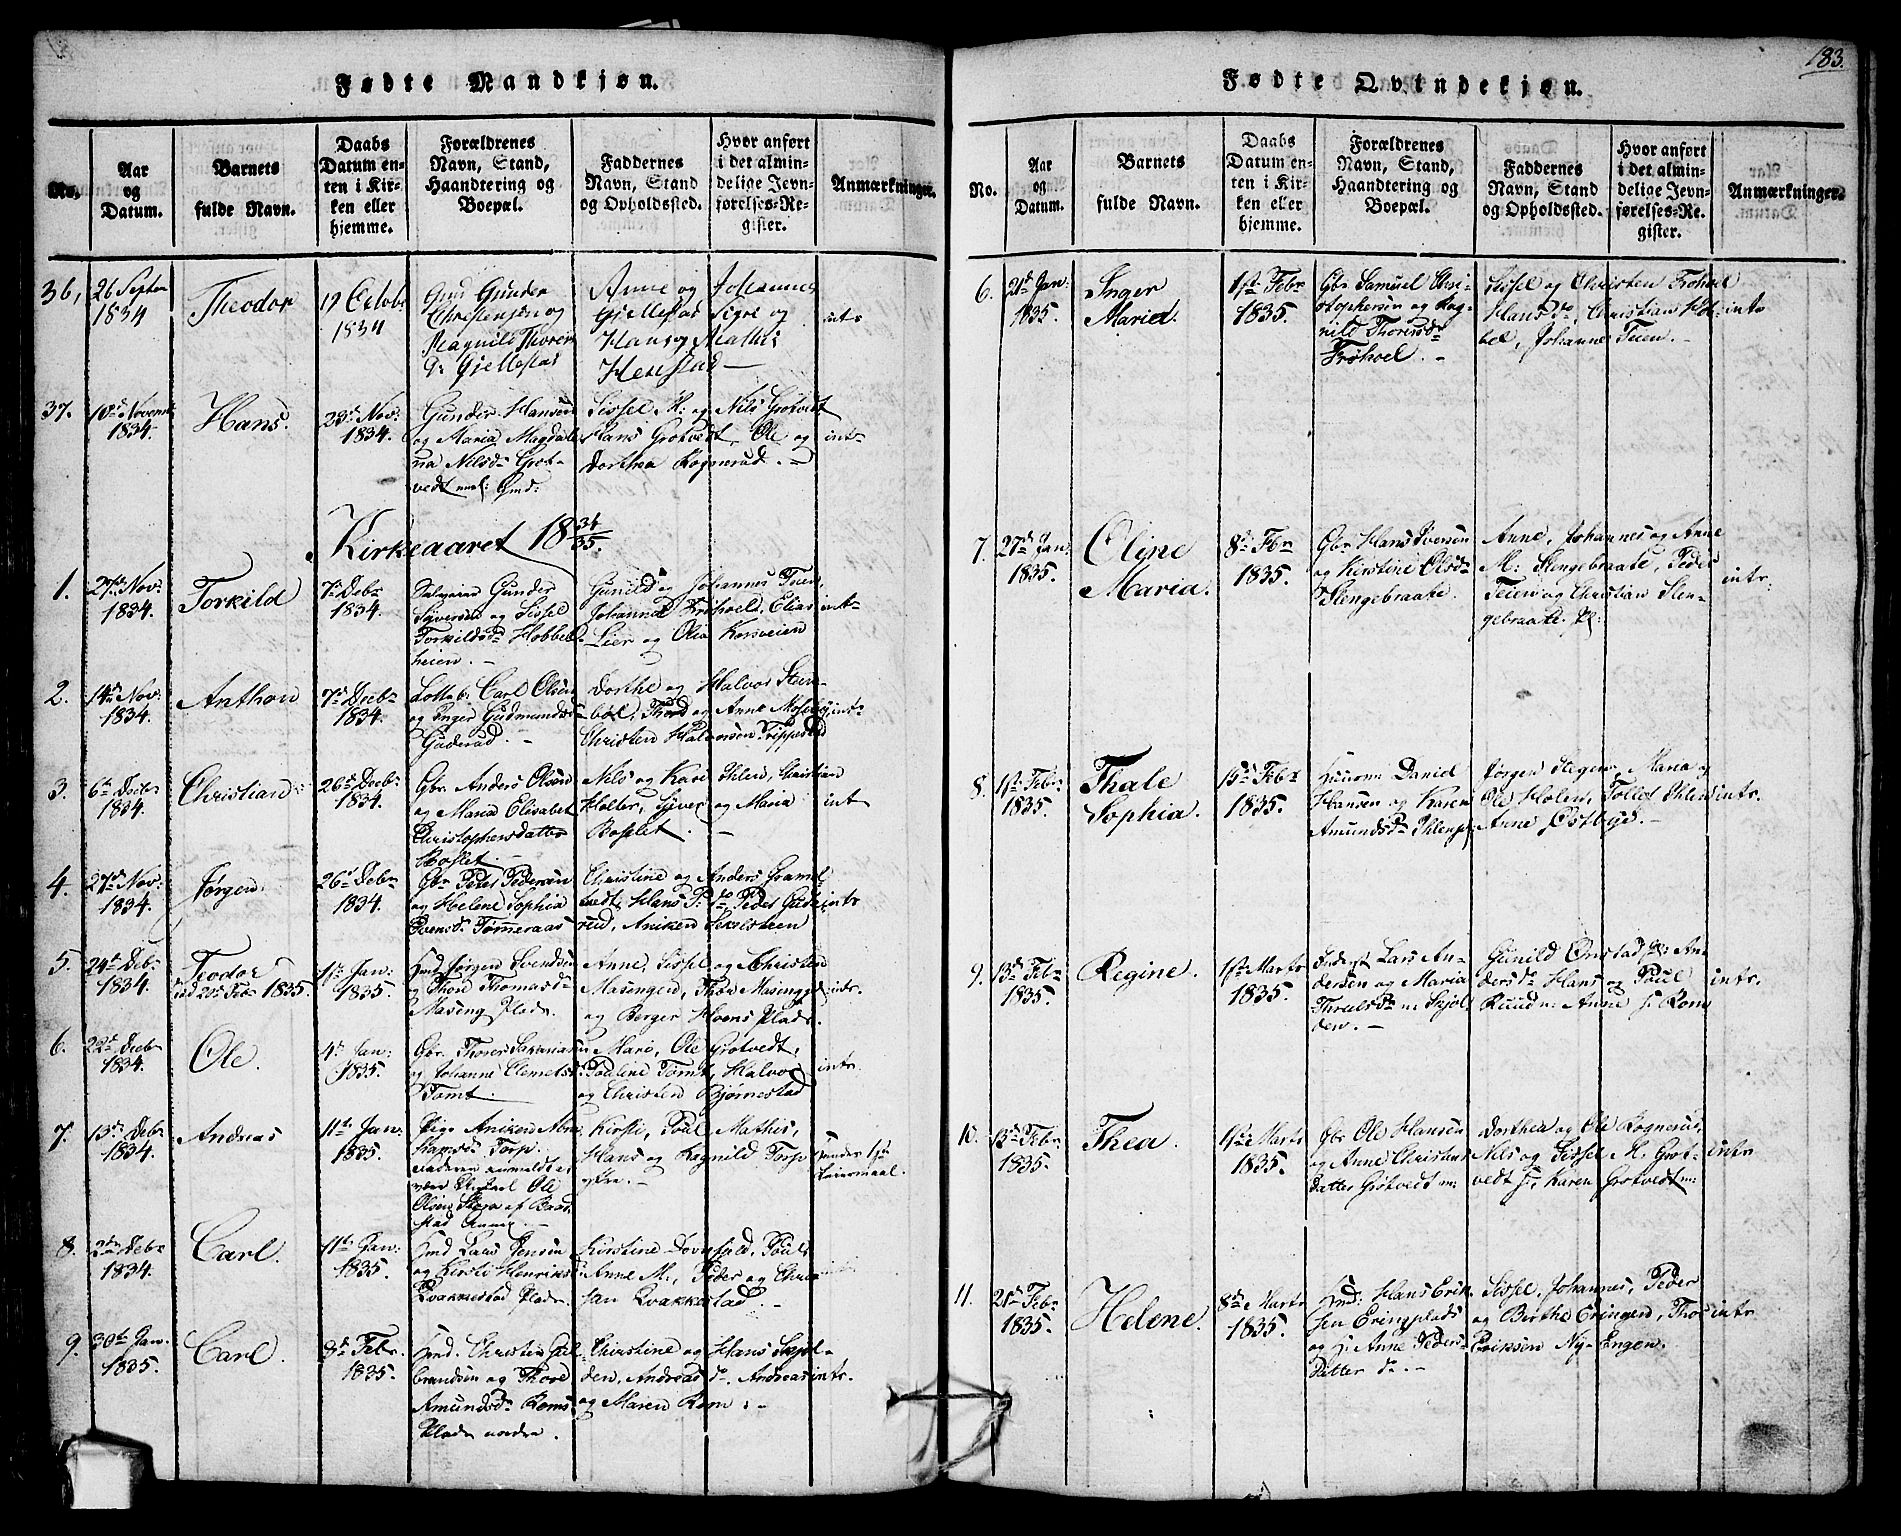 183.
Fødte Mandkjøn.
No.
Aar og Datum.
Barnets fulde Navn.
Daabs Datum enten i Kirken eller hjemme.
Forældrenes Navn, Stand, Haandtering og Boepæl.
Faddernes Navn, Stand og Opholdssted.
Hvor anført i det almindelige Jevnførelses-Register.
Anmærkninger.
36, 26 Septbr 1834
Theodor
12 Octobr 1834
Gunder
Christensen og
Magnild Thores
Gjellestad
Anne og Johannes
Gjellestad Sigre og
Hans og Mathis
Henstad
intr
37. 10d Novembr 1834.
Hans.
23d Nov: 1834.
Gunder Hansen
og Maria Magdale
na Nilsd. Grot-
vedt
Sissel M: og Nils Grotvedt
Hans Grotvedt, Ole og
Dorthea Rognerud.
intr
Kirkeaaret 18 34/35.
1. 27d Nov: 1834.
Torkild
7d Debr 1834.
Gunder
Syversen og Sissel
Torkildsd. Hobbel-
heien.
Gunild og Johannes Teien,
Johannes Frøhveld, Elias
Lier og Olia Korsveien
intr
2. 14d Nov: 1834.
Anthon
7d Decbr 1834.
Carl Olsen
og Inger Gudmundsd
Guderud.
Dorthe og Halvor Steen-
bøl, Thord og Anne Moseby
Christen Halvorsen Trippestad
intr
3. 6te Decbr 1834.
Christian
26d Decbr 1834.
Gbr Anders Olsen
og Maria Elisabet
Christophersdatter
Boslet.
Nils og Kari Ihlen, Christian
Holter, Syver og Maria
Boslet.
int
4. 27d Nov: 1834.
Jørgen
26d Debr 1834.
Gbr Peter Pedersen
og Helene Sophia
Svensd. Tømmeraas
Christine og Anders Gramel-
tvedt, Hans P. do Peder Gude-
rud, Aniken Sekelsteen
intr
5. 24d Debr 1834.
Teodor
1st Jan: 1835.
Jørgen Svendsen
og Thore Thomasd
Maseng Plads.
Anne, Sissel og Christen
Masengen, Thor Masengpl
og Berger Hoens Plads.
intr.
6. 22d Decbr 1834.
Ole.
4d Jan: 1835.
Gbr. Thores Sakariasen
og Johanne Clemetsd
Tomt.
Mari, Ole Grotvedt,
Pauline Tomt, Halvor
og Christen Bjørnestad
intr.
7. 13d Debr 1834.
Andreas
11te Jan: 1835.
Pige Aniken Abra
hamsd. Torp.
Ole
Olsen
Kirsti, Poul Mathis,
Hans og Ragnild Torp
Leiermaal.
8. 2den Debr 1834.
Carl.
11te Jan: 1835.
Lars Jensen
og Kirsti Henriksd
Kvakkestad Plads.
Kirstine Poul
Anne M., Peder og Chris
tian Kvakkestad.
9. 30te Jan. 1835.
Carl.
8de Febr. 1835.
Christen Gul-
brandsen og Thore
Amundsd. Roms
Plads nordre.
Christine og Hans Skjol-
den, Andreas do. Andreas
og Maren Rom.
intr.
Fødte Qvindekjøn.
No.
Aar og Datum.
Barnets fulde Navn.
Daabs Datum enten i Kirken eller hjemme.
Forældrenes Navn, Stand, Haandtering og Boepæl.
Faddernes Navn, Stand og Opholdssted.
Hvor anført i det almindelige Jevnførelses-Register.
Anmærkninger.
6. 21d Jan: 1835.
Inger
Maria.
1st Febr 1835.
Gbr Samuel Chri-
stophersen og Rag-
nild Thoresd
Frøhoel.
Sissel og Christen Frøhoel
Hans do, Christian Hob-
bel, Johanne Teien.
intr
7. 27d Jan: 1835.
Oline
Maria.
8d Fbr 1835.
Gbr Hans Iversen
og Kirstine Olsd
Slengebraate.
Anne, Johannes og Anne
M: Slengebraate, Peder
Teien og Christian Slen-
gebraate.
intr.
8. 1st Febr 1835.
Thale
Sophia.
15d Febr 1835.
Daniel
Hansen og Karen
Amundsd. Ihlenpl:
Jørgen Stegen, Maria og
Ole Holen, Tollef Ihlen
Anne Østbye.
intr.
9. 13d Febr 1835.
Regine.
1ste Marts 1835.
Lars An-
dersen og Maria
Skjol
den.
Gunild Onstad An-
dersd. Hans og Poul
Ruud Anne Rom
intr.
10. 13d Febr 1835.
Thea.
1ste Marts 1835.
Gbr Ole Hansen
og Anne Christens
datter Grotvedt
Dorthea og Ole Rognerud,
Nils og Sissel M. Grot-
vedt Karen Grotvedt
intr
11. 21d Febr 1835.
Helene.
8de Marts 1835.
Hans Erik
sen Eringplads
og Anne Peders
datter do.
Sissel, Johannes, Peder
og Berthe Eringen, Thor
Eriksen Ny-Engen.
intr